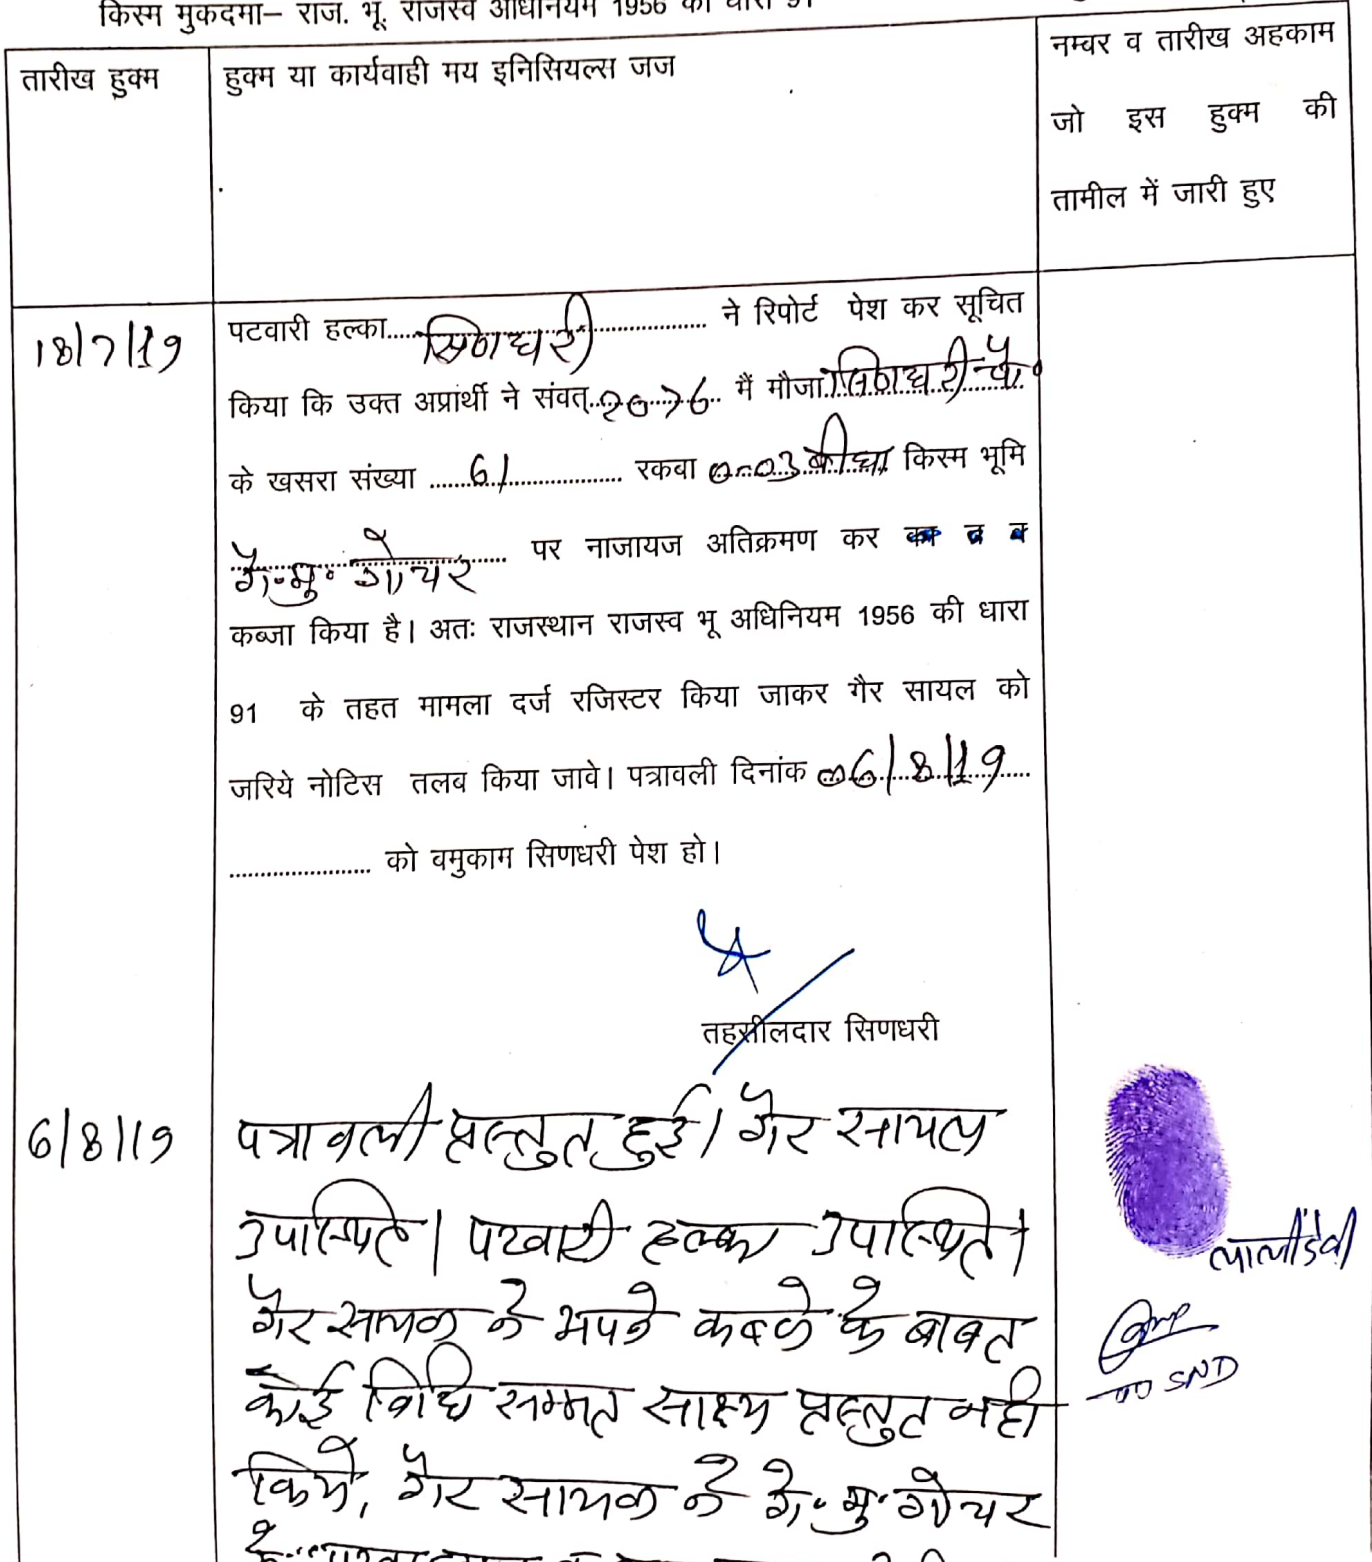 किस्म मुकदमा– राज. भू. राजस्व अधिनियम 1956 की धारा 91
तारीख हुक्म
हुक्म या कार्यवाही मय इनिसियल्स जज
नम्बर व तारीख अहकाम
जो इस हुक्म की
तामील में जारी हुए
18/7/19
पटवारी हल्का.....सिणधरी..... ने रिपोर्ट पेश कर सूचित
किया कि उक्त अप्रार्थी ने संवत्..2076.. मैं मौजा सिणधरी चौ०
के खसरा संख्या ......61............ रकबा 0-03 बीघा किस्म भूमि
गै.मु. गोचर ...... पर नाजायज अतिक्रमण कर
कब्जा किया है। अतः राजस्थान राजस्व भू अधिनियम 1956 की धारा
91 के तहत मामला दर्ज रजिस्टर किया जाकर गैर सायल को
जरिये नोटिस तलब किया जावे। पत्रावली दिनांक 06/8/19
...................... को वमुकाम सिणधरी पेश हो।
तहसीलदार सिणधरी
6/8/19
पत्रावली प्रस्तुत हुई। गैर सायल
उपस्थित। पटवारी हल्का उपस्थित।
गैर सायल ने अपने कब्जे के बाबत
कोई विधि सम्मत साक्ष्य प्रस्तुत नही
किये, गैर सायल ने गै.मु. गोचर
लालीदेवी
SND